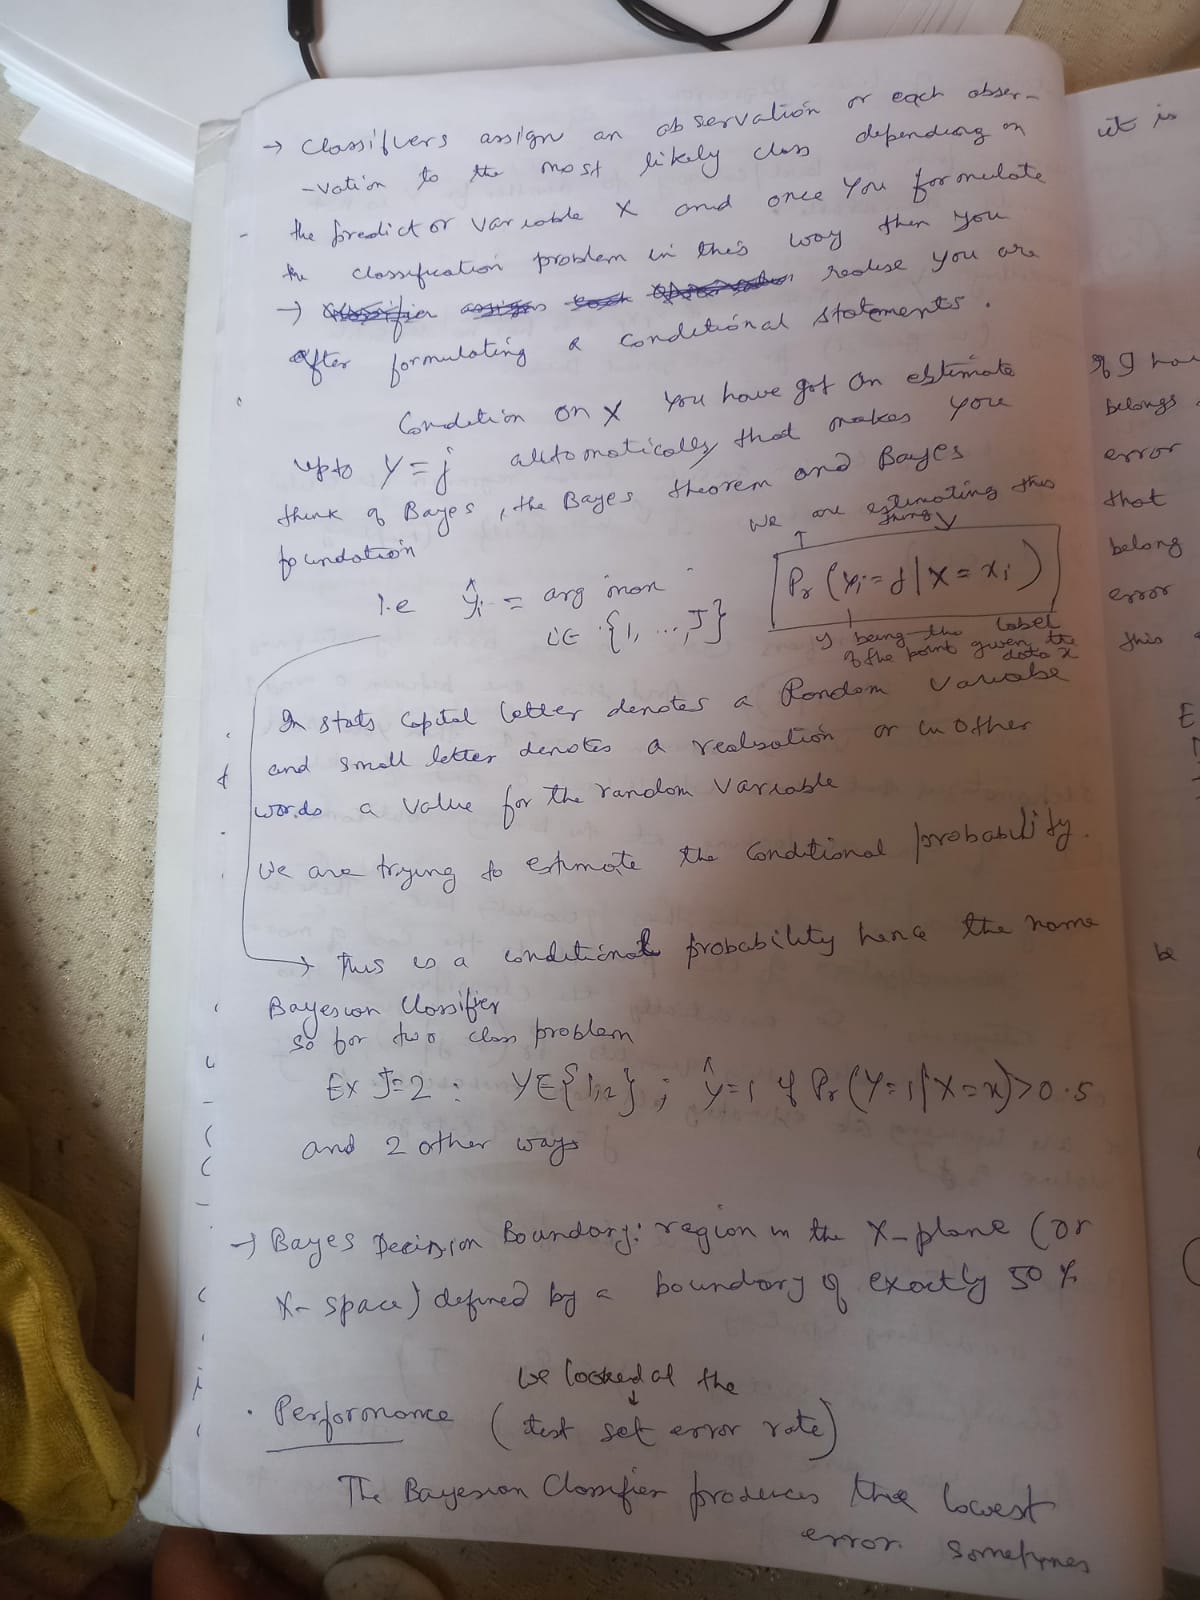 → Classifiers assign an observation or each obser-
-vation to the most likely class depending on
the predictor variable X and once you formulate
the classification problem in this way then you
→ realise you are
after formulating a conditional statements.
Condition on X you have got an estimate
upto Y=j automatically that makes you
think of Bayes, the Bayes theorem and Bayes
foundation
We are estimating this
thing
i.e ŷi = arg max Pr (Yi = j | X = xi)
i∈ {1, ..., J}
y being the label
of the point given the
data x
In stats Capital letter denotes a Random Variabe
and small letter denotes a realisation or in other
words a value for the random variable
We are trying to estimate the Conditional probability.
→ This is a conditional probability hence the name
Bayesian Classifier
so for two class problem
Ex J=2 : Y∈{1,2} ; ŷ=1 if Pr (Y=1|X=x)>0.5
and 2 other ways
→ Bayes Decision Boundary: region in the X-plane (or
X- space) defined by a boundary of exactly 50 %
We looked at the
· Performance (test set error rate)
The Bayesian Classifier produces the lowest
error sometimes
it is
If I hav
belongs
error
that
belong
error
this
be